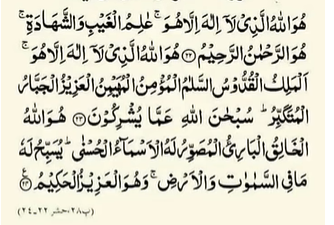 هُوَ اللهُ الَّذِیْ لَاۤ اِلٰهَ اِلَّا هُوَ ۚ عٰلِمُ الْغَیْبِ وَالشَّهَادَةِ ۚ
هُوَ الرَّحْمٰنُ الرَّحِیْمُ ﴿۲۲﴾ هُوَ اللهُ الَّذِیْ لَاۤ اِلٰهَ اِلَّا هُوَ ۚ
اَلْمَلِكُ الْقُدُّوْسُ السَّلٰمُ الْمُؤْمِنُ الْمُهَیْمِنُ الْعَزِیْزُ الْجَبَّارُ
الْمُتَكَبِّرُ ؕ سُبْحٰنَ اللهِ عَمَّا یُشْرِكُوْنَ ﴿۲۳﴾ هُوَ اللهُ
الْخَالِقُ الْبَارِئُ الْمُصَوِّرُ لَهُ الْاَسْمَآءُ الْحُسْنٰی ؕ یُسَبِّحُ لَهٗ
مَا فِی السَّمٰوٰتِ وَالْاَرْضِ ۚ وَهُوَ الْعَزِیْزُ الْحَكِیْمُ ﴿۲۴﴾
(پ۲۸، حشر ۲۲ـ۲۴)